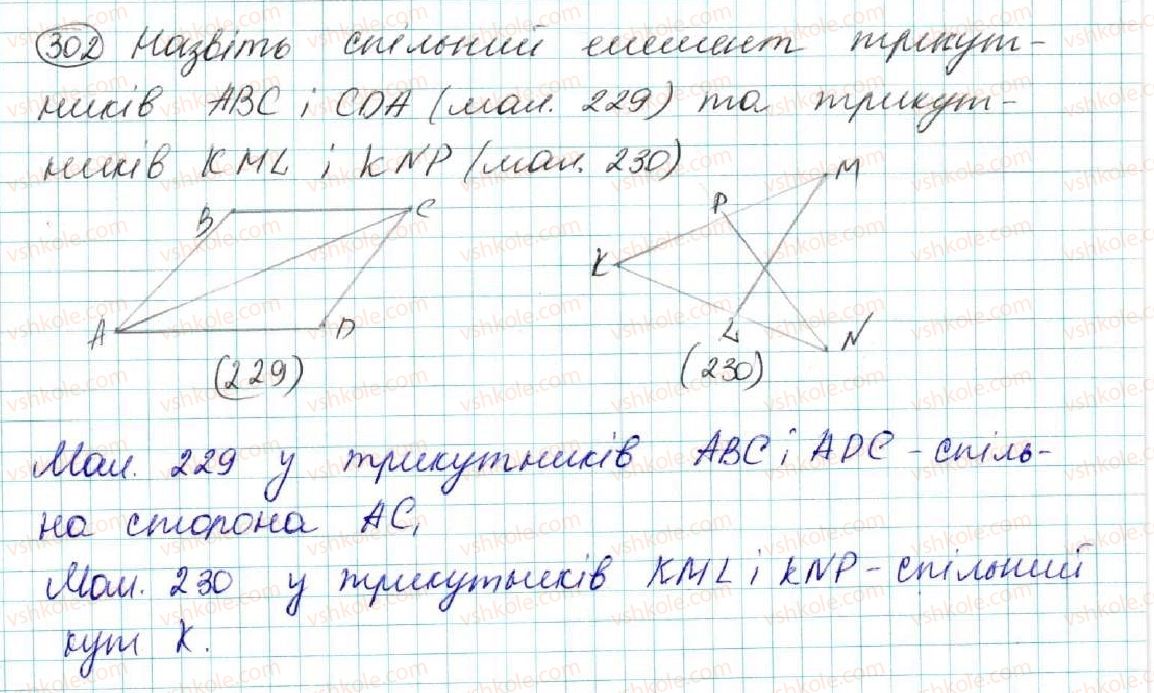 302 Назвіть спільний елемент трикут-
ників ABC і CDA (мал. 229) та трикут-
ників KML і KNP (мал. 230)
B C
A D
(229)
M
P
K
L N
(230)
Мал. 229 у трикутників ABC і ADC - спіль-
на сторона AC,
Мал. 230 у трикутників KML і KNP - спільний
кут K.
vshkole.com